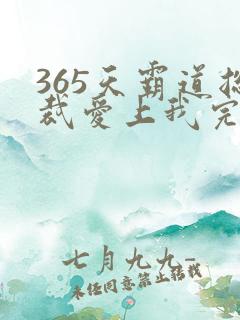 365天霸道总
裁爱上我完
七月九九-
未经同意禁止转载